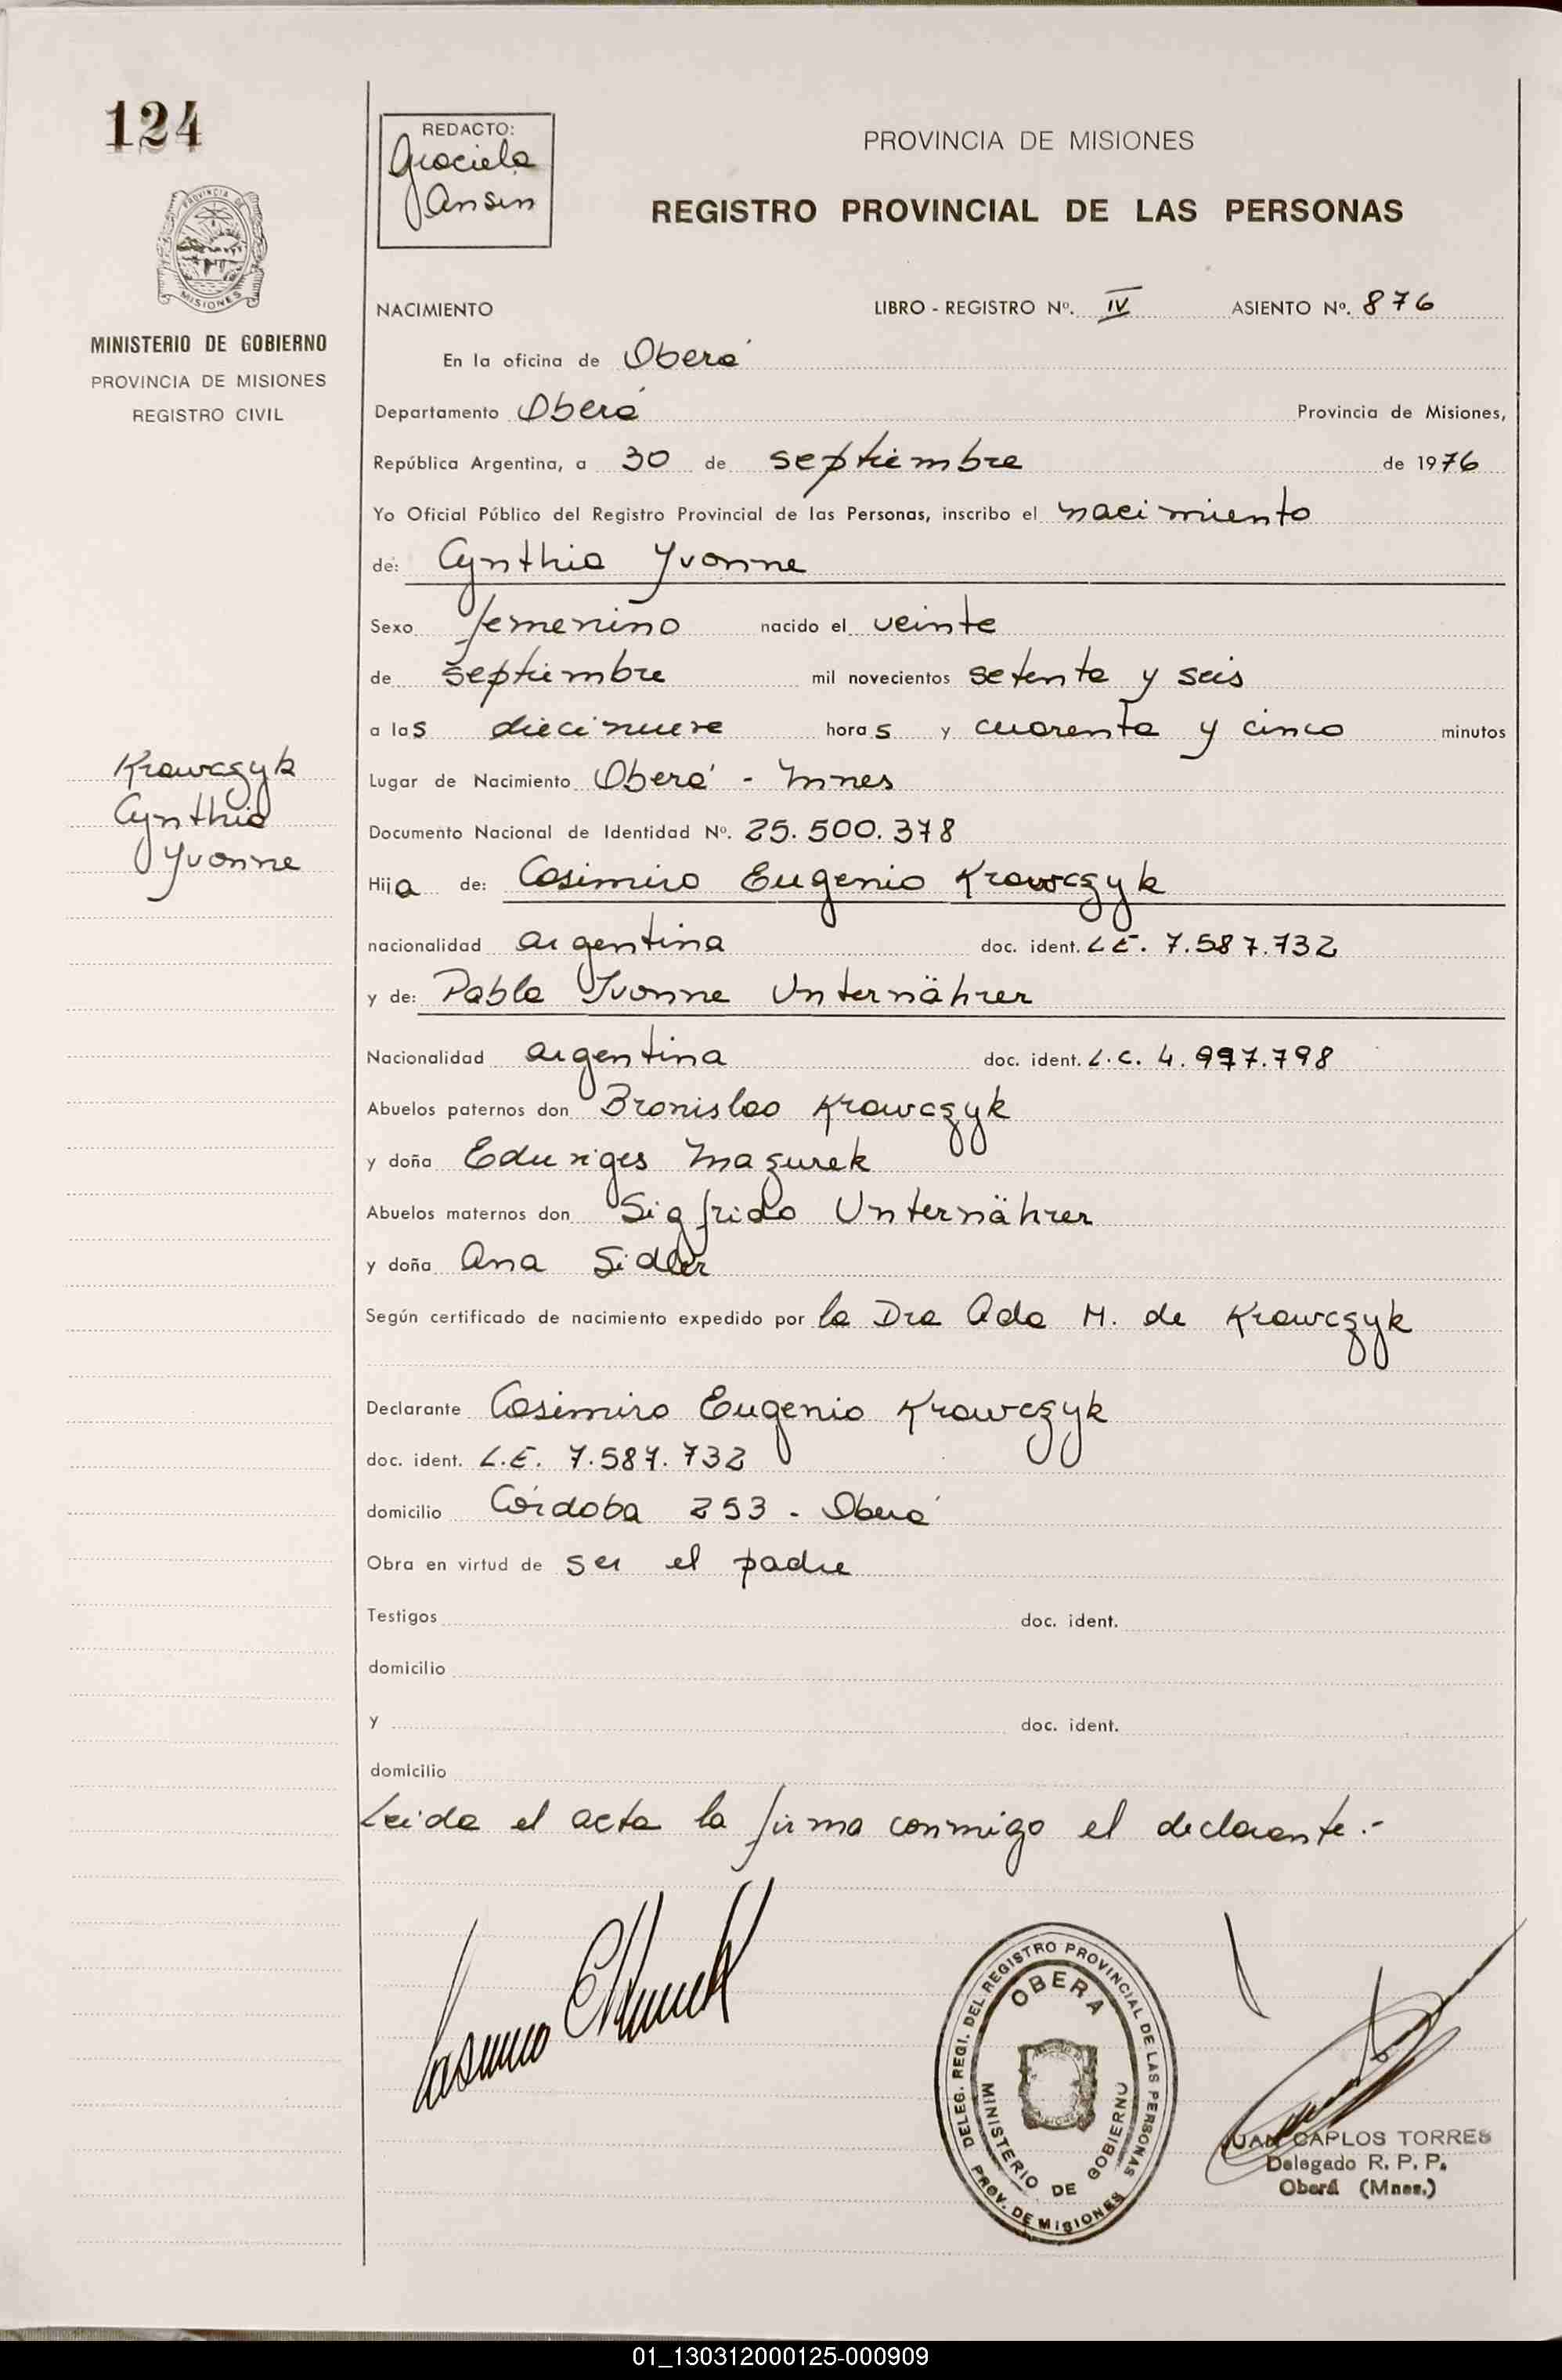 124
PROVINCIA DE
MISIONES
MINISTERIO DE GOBIERNO
PROVINCIA DE MISIONES
REGISTRO CIVIL
Krawczyk
Cynthia
Yvonne
REDACTO:
Graciela
Ansin
PROVINCIA DE MISIONES
REGISTRO PROVINCIAL DE LAS PERSONAS
NACIMIENTO LIBRO - REGISTRO Nº. IV ASIENTO Nº. 876
En la oficina de Oberá
Departamento Oberá Provincia de Misiones,
República Argentina, a 30 de septiembre de 1976
Yo Oficial Público del Registro Provincial de las Personas, inscribo el nacimiento
de: Cynthia Yvonne
Sexo femenino nacido el veinte
de septiembre mil novecientos setenta y seis
a las diecinueve horas y cuarenta y cinco minutos
Lugar de Nacimiento Oberá - Mnes
Documento Nacional de Identidad Nº. 25.500.378
Hija de: Casimiro Eugenio Krawczyk
nacionalidad argentina doc. ident. L.E. 7.587.732
y de: Pabla Ivonne Unternährer
Nacionalidad argentina doc. ident. L.C. 4.997.798
Abuelos paternos don Bronislao Krawczyk
y doña Eduviges Mazurek
Abuelos maternos don Sigfrido Unternährer
y doña Ana Sidler
Según certificado de nacimiento expedido por la Dra Ada M. de Krawczyk
Declarante Casimiro Eugenio Krawczyk
doc. ident. L.E. 7.587.732
domicilio Córdoba 253 - Oberá
Obra en virtud de ser el padre
Testigos doc. ident.
domicilio
y doc. ident.
domicilio
Leida el acta la firma conmigo el declarante.-
DELEG. REGI. DEL REGISTRO PROVINCIAL DE LAS PERSONAS
OBERA
MINISTERIO DE GOBIERNO
PROV. DE MISIONES
JUAN CARLOS TORRES
Delegado R. P. P.
Oberá (Mnes.)
01_130312000125-000909